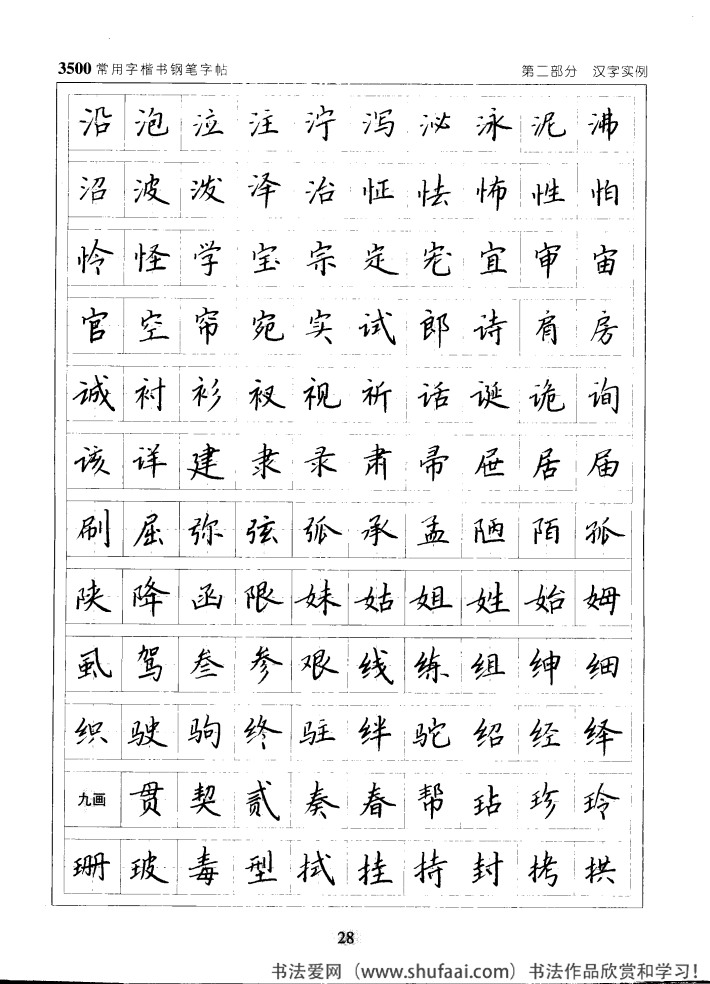 3500常用字楷书钢笔字帖 第二部分 汉字实例
沿 泡 泣 注 泞 泻 泌 泳 泥 沸
沼 波 泼 泽 治 怔 怯 怖 性 怕
怜 怪 学 宝 宗 定 宠 宜 审 宙
官 空 帘 宛 实 试 郎 诗 肩 房
诚 衬 衫 衩 视 祈 话 诞 诡 询
该 详 建 隶 录 肃 帚 屉 居 届
刷 屈 弥 弦 弧 承 孟 陋 陌 孤
陕 降 函 限 妹 姑 姐 姓 始 姆
虱 驾 叁 参 艰 线 练 组 绅 细
织 驶 驹 终 驻 绊 驼 绍 经 绎
九画 贯 契 贰 奏 春 帮 玷 珍 玲
珊 玻 毒 型 拭 挂 持 封 拷 拱
28
书法爱网（www.shufaai.com）书法作品欣赏和学习！